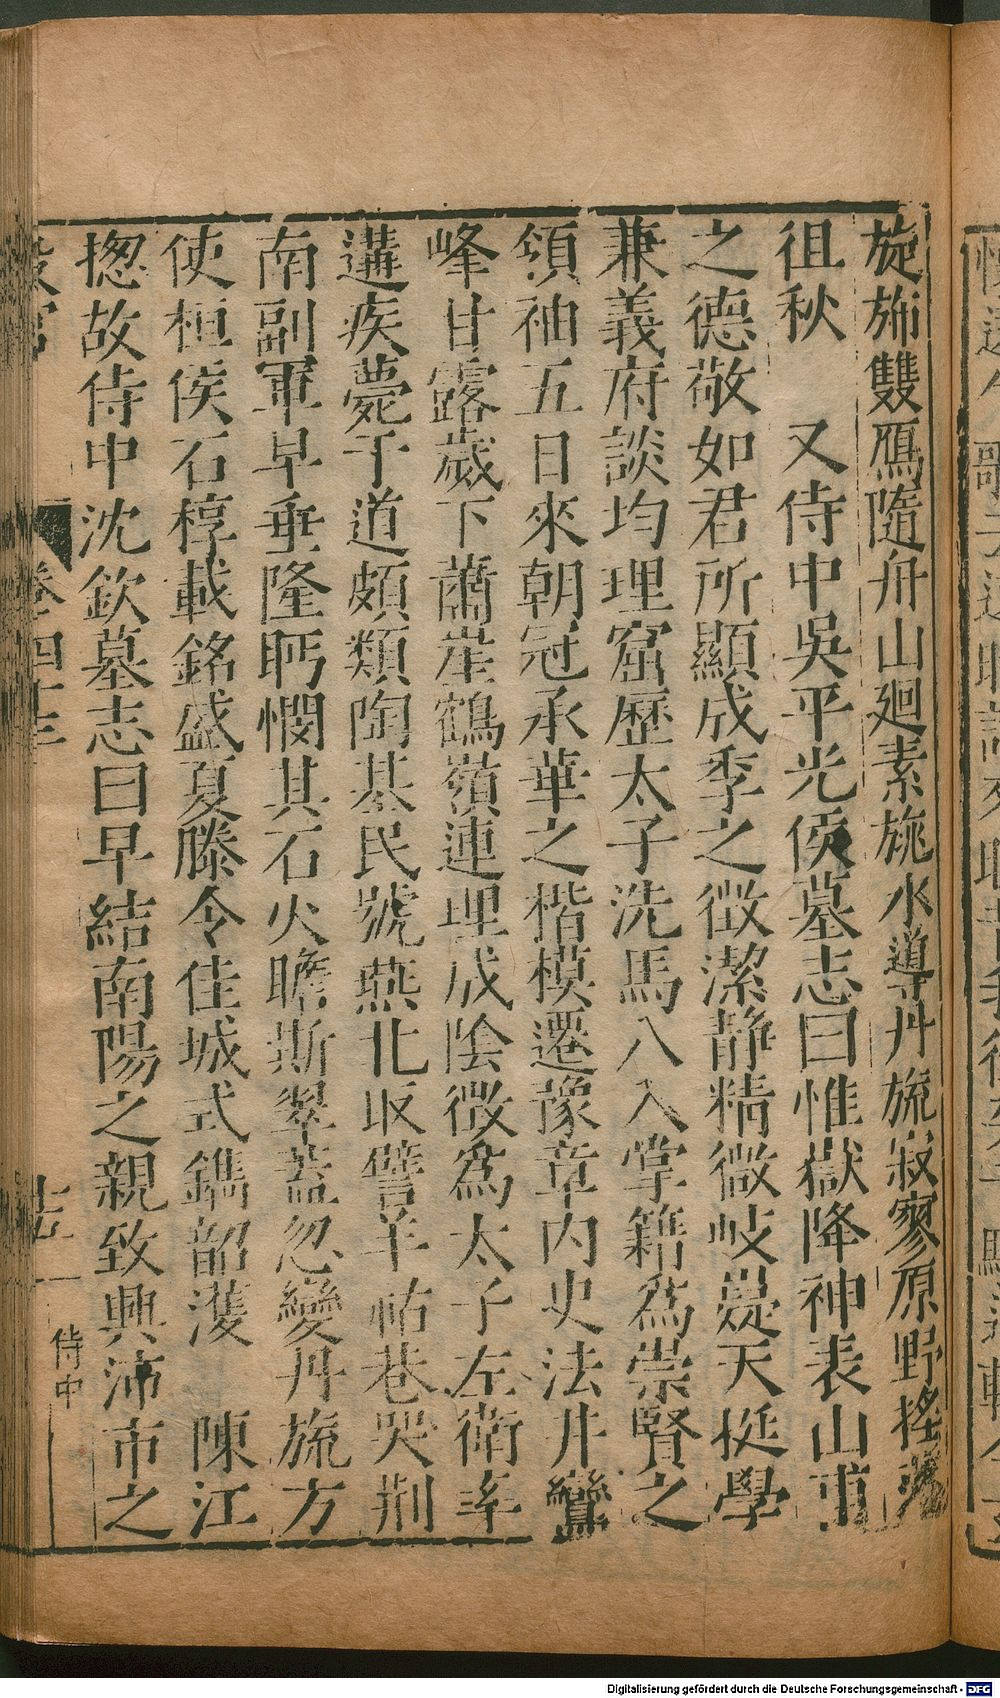 旋斾雙鴈隨舟山廻素旐水導丹旒寂寥原野搖
徂秋　又侍中吳平光侯墓志曰惟嶽降神表山甫
之德敬如君所顯成季之徵潔静精微岐嶷天挺學
兼義府談均理窟歷太子洗馬八入掌籍爲崇賢之
領袖五日來朝冠承華之楷模遷豫章内史法井鸞
峰甘露歲下蕭崖鶴嶺連理成陰徴爲太子左衛率
遘疾薨于道頗類陶基民號燕北取譬羊祜巷哭荊
南副軍早垂隆眄憫其石火瞻斯翠蓋忽變丹旒方
使桓侯石椁載銘盛夏滕令佳城式鐫韶濩　陳江
揔故侍中沈欽墓志曰早結南陽之親致興沛市之
卷四十
侍中
Digitalisierung gefördert durch die Deutsche Forschungsgemeinschaft - DFG